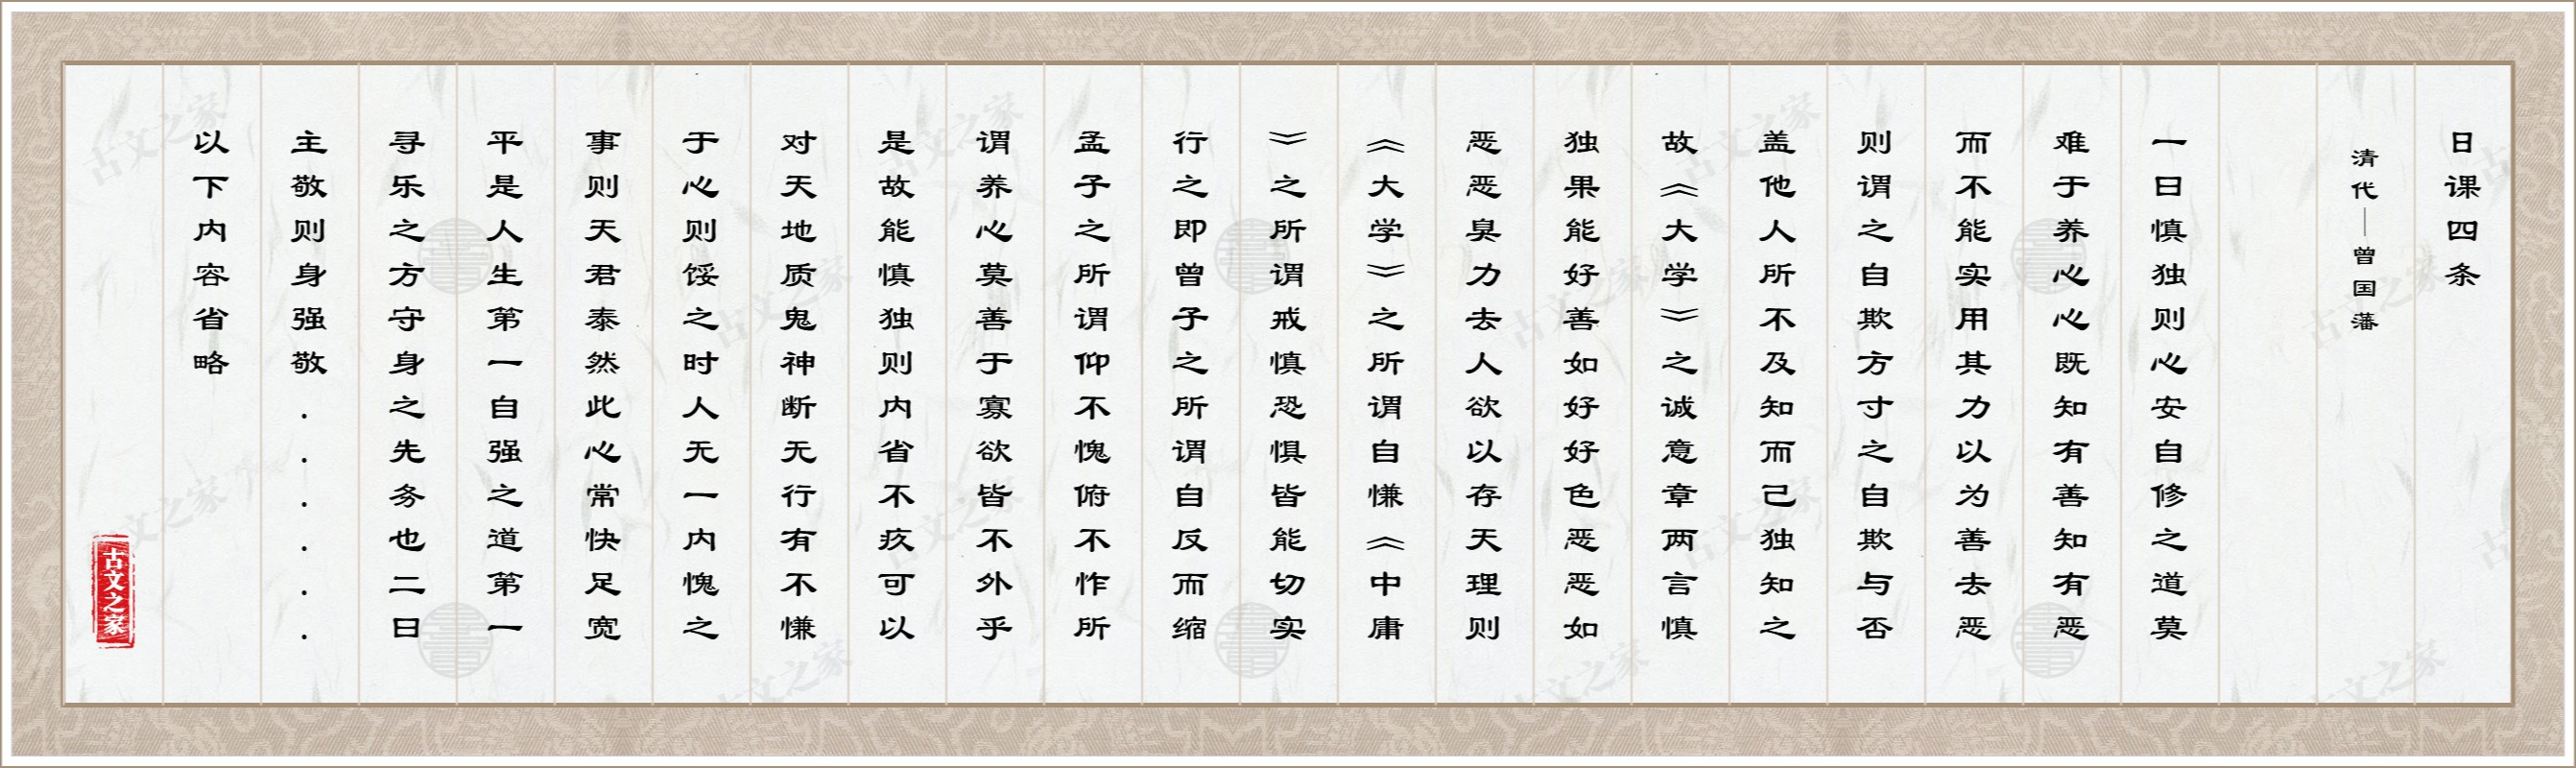 日课四条
清代—曾国藩
一曰慎独则心安自修之道莫
难于养心心既知有善知有恶
而不能实用其力以为善去恶
则谓之自欺方寸之自欺与否
盖他人所不及知而己独知之
故《大学》之诚意章两言慎
独果能好善如好好色恶恶如
恶恶臭力去人欲以存天理则
《大学》之所谓自慊《中庸
》之所谓戒慎恐惧皆能切实
行之即曾子之所谓自反而缩
孟子之所谓仰不愧俯不怍所
谓养心莫善于寡欲皆不外乎
是故能慎独则内省不疚可以
对天地质鬼神断无行有不慊
于心则馁之时人无一内愧之
事则天君泰然此心常快足宽
平是人生第一自强之道第一
寻乐之方守身之先务也二曰
主敬则身强敬......
以下内容省略
古文之家